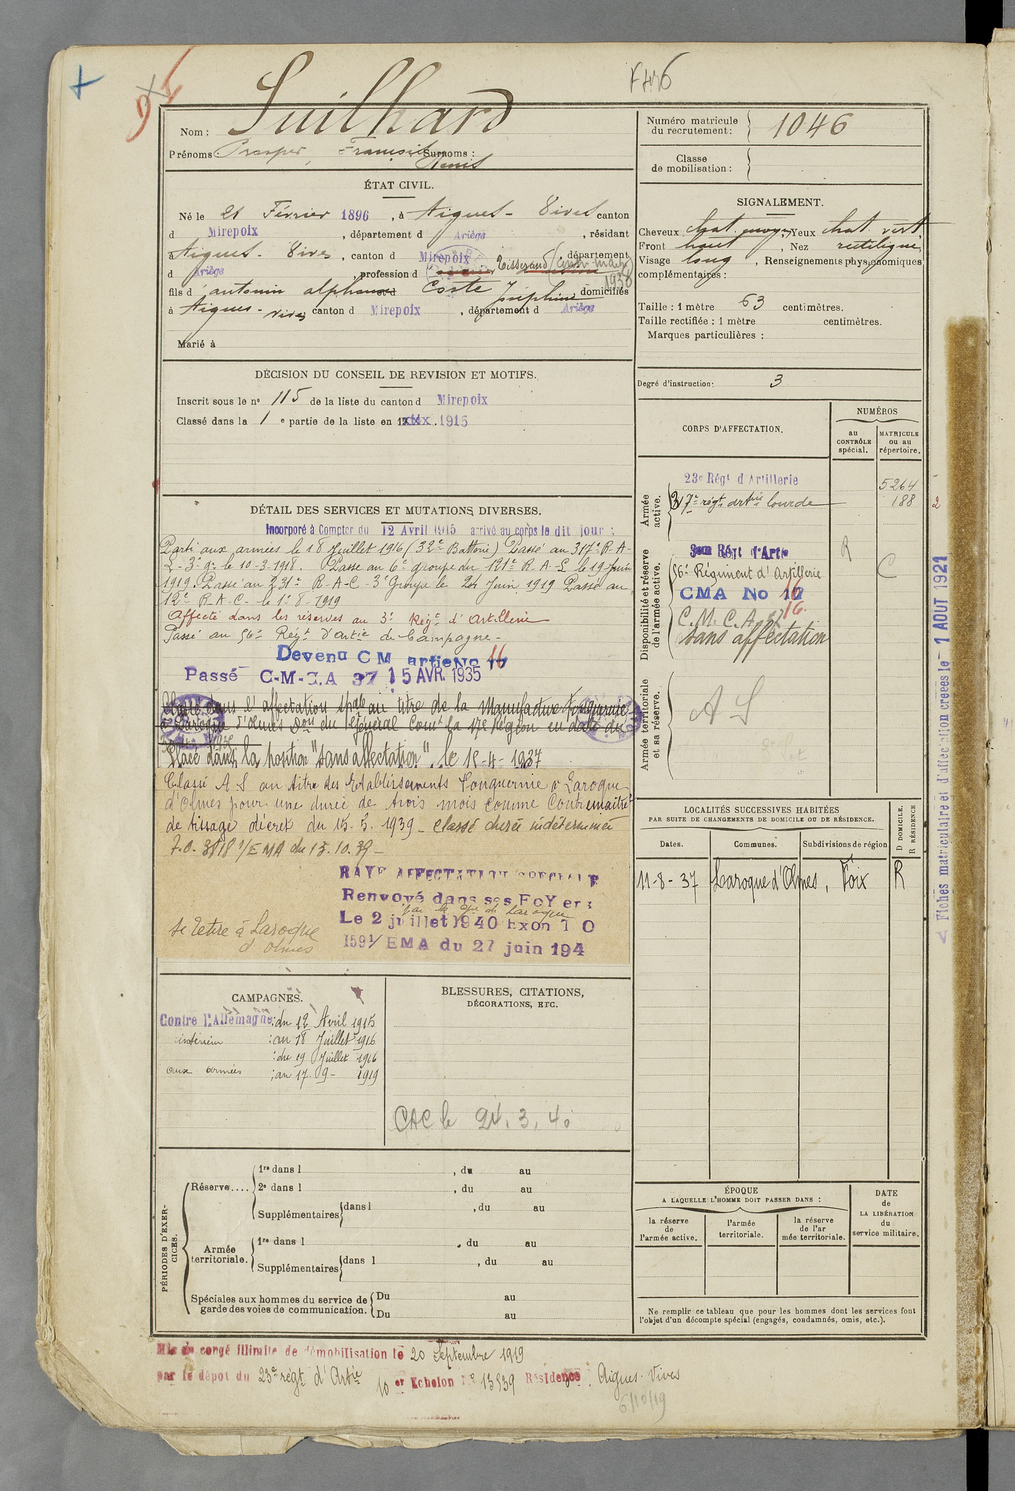 Nom : Suilhard
Prénoms : Prosper, François Surnoms :
Denis
ÉTAT CIVIL.
Né le 21 Février 1896, à Aigues-Vives canton
d Mirepoix, département d Ariège, résidant
Aigues-Vives, canton d Mirepoix, département
d Ariège profession d Tisserand
1938
fils d' antonin alphonse et d Coste Joséphine domiciliés
à Aigues-Vives canton d Mirepoix, département d Ariège
Marié à
DÉCISION DU CONSEIL DE REVISION ET MOTIFS.
Inscrit sous le n° 115 de la liste du canton d Mirepoix
Classé dans la 1 e partie de la liste en 1915
DÉTAIL DES SERVICES ET MUTATIONS DIVERSES.
Incorporé à Compter du 12 Avril 1915 arrivé au corps le dit jour :
Parti aux armées le 18 Juillet 1916 (32e Batterie) Passé au 317e R-A-
L-3e gr. le 10-3-1918. Passe au 6e groupe du 121e R.A.L le 19 Juin
1919. Passé au 231e R-A-C-3e Groupe le 24 Juin 1919 Passé au
12e R.A.C. le 1er 8-1919
Affecté dans les réserves au 3e Régt d'Artillerie
Passé au 56e Régt d'Artie de Campagne-
Devenu CM artie No 17 16
Passé C-M-C.A 37 15 AVR. 1935
Classé dans l'affectation spéale au titre de la Manufacture Fonquernie
à Laroque d'Olmes Don du Général Comt la 17e Région en date du
Placé dans la position "sans affectation", le 15-4-1937
Classé A S au titre des Etablissements Fonquernie à Laroque
d'Olmes pour une durée de trois mois comme Contremaître
de tissage décret du 15.5.1939 - classé durée indéterminée
/EMA du 13.10.39-
RAYE AFFECTATION SPECIALE
Renvoyé dans ses FoYers
Le 2 juillet 1940 Exon T O
1591/ EMA du 27 juin 194
se retire à Laroque
d'olmes
CAMPAGNES.
Contre l'Allemagne : du 12 Avril 1915
intérieur : au 18 Juillet 1916
: du 19 Juillet 1916
aux armées : au 17-9-1919
BLESSURES, CITATIONS,
DÉCORATIONS, ETC.
CAC le 24.3.40
PÉRIODES D'EXERCICES.
Réserve....
1re dans l , du au
2e dans l , du au
Supplémentaires dans l , du au
Armée territoriale.
1re dans l , du au
Supplémentaires dans l , du au
Spéciales aux hommes du service de garde des voies de communication.
Du au
Du au
Mis en congé illimité de démobilisation le 20 Septembre 1919
par le dépôt du 23e régt d'Artie 10 er Echelon N° 13539 Résidence : Aigues-Vives
6/10/19
Numéro matricule
du recrutement : 1046
Classe
de mobilisation :
SIGNALEMENT.
Cheveux chat. moyen, Yeux chat. vert
Front haut, Nez rectiligne
Visage long, Renseignements physionomiques
complémentaires :
Taille : 1 mètre 63 centimètres.
Taille rectifiée : 1 mètre centimètres.
Marques particulières :
Degré d'instruction : 3
CORPS D'AFFECTATION.
NUMÉROS
au
CONTRÔLE
spécial.
MATRICULE
ou au
répertoire.
Armée active.
23e Régt d'Artillerie 5264
317e régt artie lourde 188
2
Disponibilité et réserve de l'armée active.
Régt d'Artie R
56e Régiment d'Artillerie C
CMA No 17 16
C.M.C.A. 37 16.
Sans affectation
Armée territoriale et sa réserve.
A S
LOCALITÉS SUCCESSIVES HABITÉES
PAR SUITE DE CHANGEMENTS DE DOMICILE OU DE RÉSIDENCE.
D DOMICILE.
R RÉSIDENCE
Dates. Communes. Subdivisions de région
11-8-37 Laroque d'Olmes, Foix R
ÉPOQUE
A LAQUELLE L'HOMME DOIT PASSER DANS :
la réserve
de
l'armée active.
l'armée
territoriale.
la réserve
de l'ar
mée territoriale.
DATE
de
LA LIBÉRATION
du
service militaire.
Ne remplir ce tableau que pour les hommes dont les services font
l'objet d'un décompte spécial (engagés, condamnés, omis, etc.).
Fiches matriculaire et d'affection créées le 1 AOUT 1921